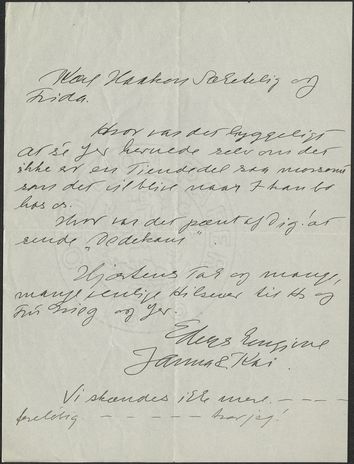 Kære Haakon Schetelig og
Frida.
Hvor var det hyggeligt
at se Jer hernede selv om det
ikke er en Tiendedel saa morsomt
som det vil blive naar I kan bo
hos os.
Hvor var det pænt af Dig at
sende "Dedekam"
Hjertens Tak og mange,
mange venlige Hilsener til Hr og
Fru Krieg og Jer.
Eders Hengivne
Janna & Kai.
Vi skændes ikke mere. - - - -
foreløbig - - - - - tror jeg!